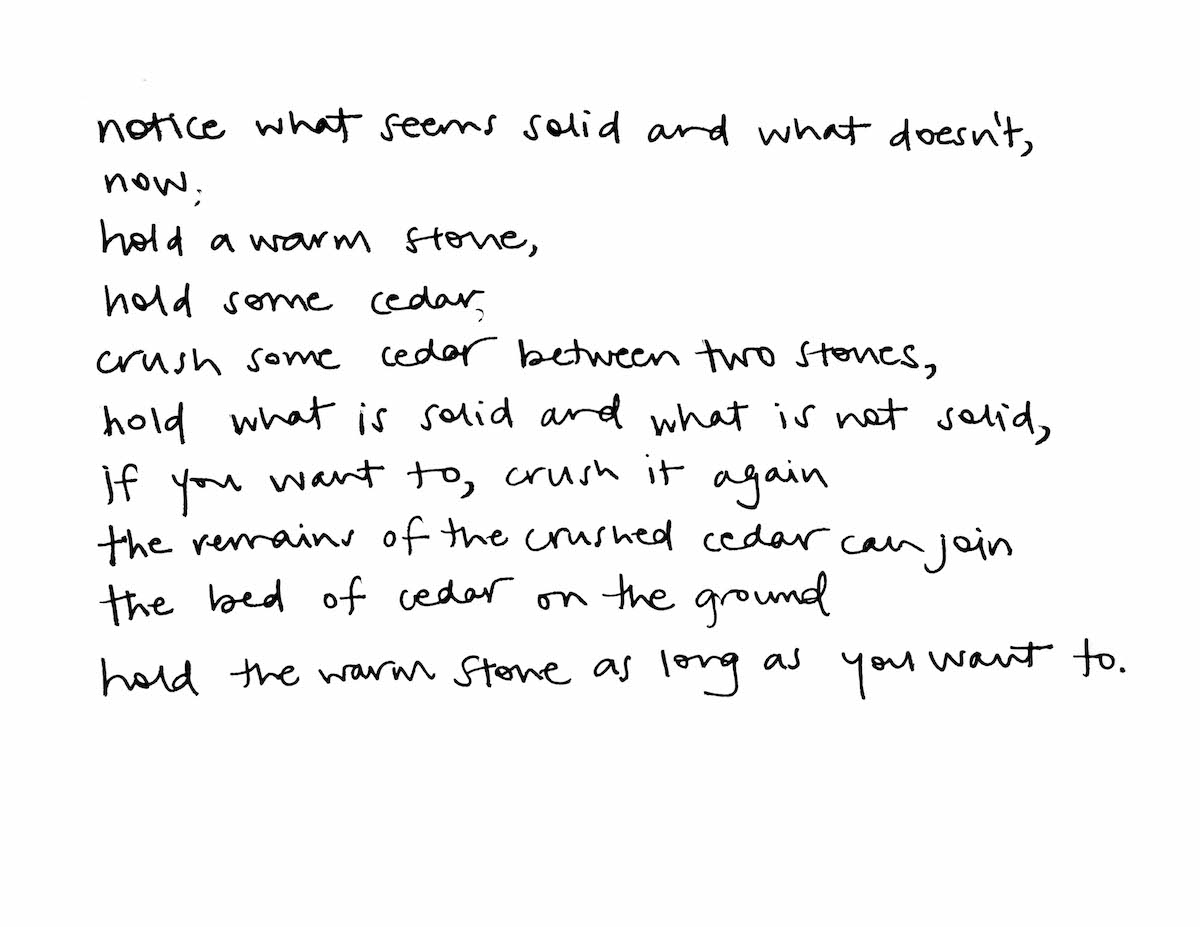 notice what seems solid and what doesn't,
now;
hold a warm stone,
hold some cedar,
crush some cedar between two stones,
hold what is solid and what is not solid,
if you want to, crush it again
the remains of the crushed cedar can join
the bed of cedar on the ground
hold the warm stone as long as you want to.